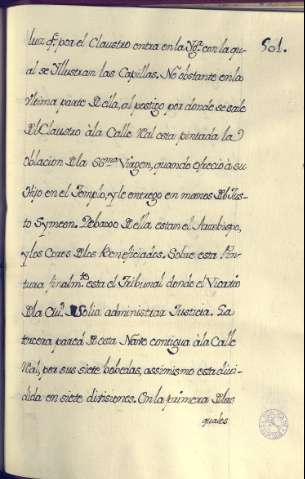 501.
luz q̃ por el Claustro entra en la Yg.ª con la qu-
al se Illustran las Capillas. No obstante en la
ultima parte Della, al postigo por donde se sale
Del Claustro à la Calle Real esta pintada la
Oblacion De la SS.ma Virgen, quando ofreció à su
Hijo en el Templo, y le entrego en manos Del Jus-
to Symeon. Debaxo Della estan el Arzobispo,
y los Cores De los Beneficiados. Sobre esta Pin-
tura finalm.te esta el Tribunal donde el Vicario
De la Ciu.d Solia administrar Justicia. La
tercera pared De esta Nave contigua à la Calle
Real, por sus siete bobedas, assimismo esta divi-
dida en siete divisiones. En la primera De las
quales